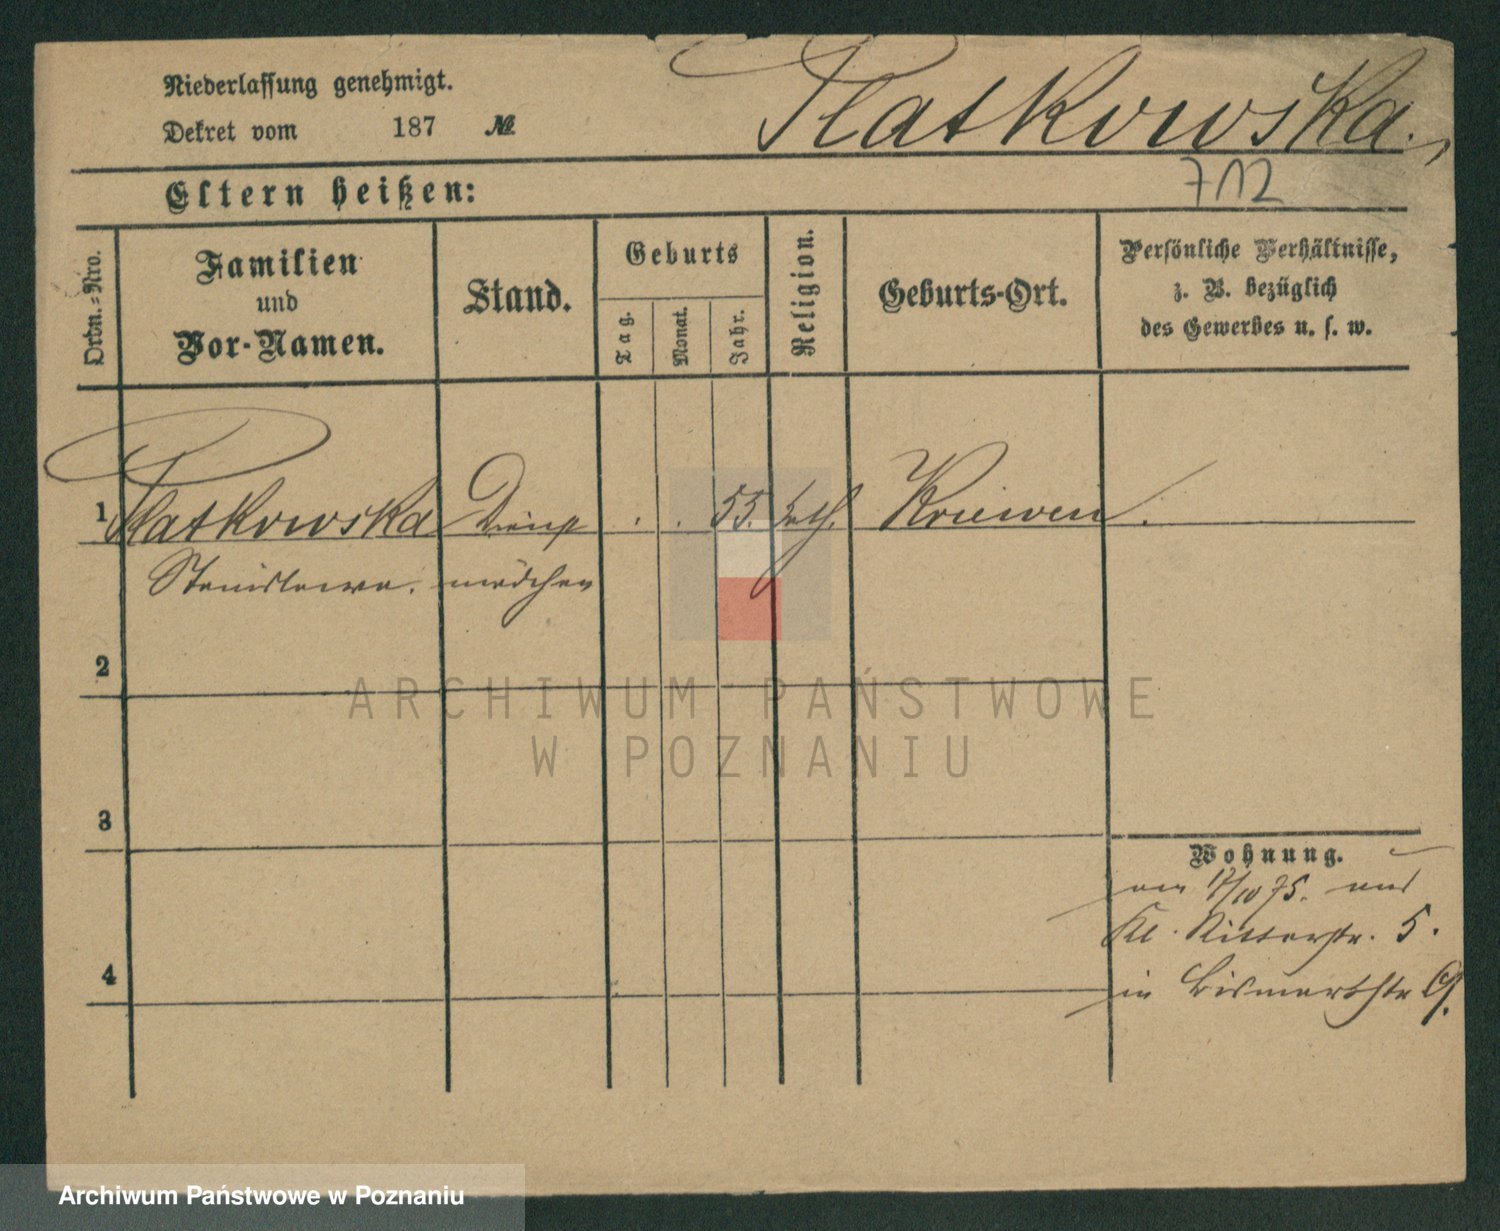 Niederlassung genehmigt.
Dekret vom 187 №
Platkowska.
Eltern heißen:
712
Ordn.=Nro.
Familien
und
Vor-Namen.
Stand.
Geburts
Tag.
Monat.
Jahr.
Religion.
Geburts-Ort.
Persönliche Verhältnisse,
z. B. bezüglich
des Gewerbes u. s. w.
1 Platkowska Dienst . . 55. kath. Kriewen.
Stanislawa. mädchen
2
3
4
Wohnung.
am /10 75. aus
Kl. Ritterstr. 5.
in Bismarkstr
ARCHIWUM PAŃSTWOWE
W POZNANIU
Archiwum Państwowe w Poznaniu